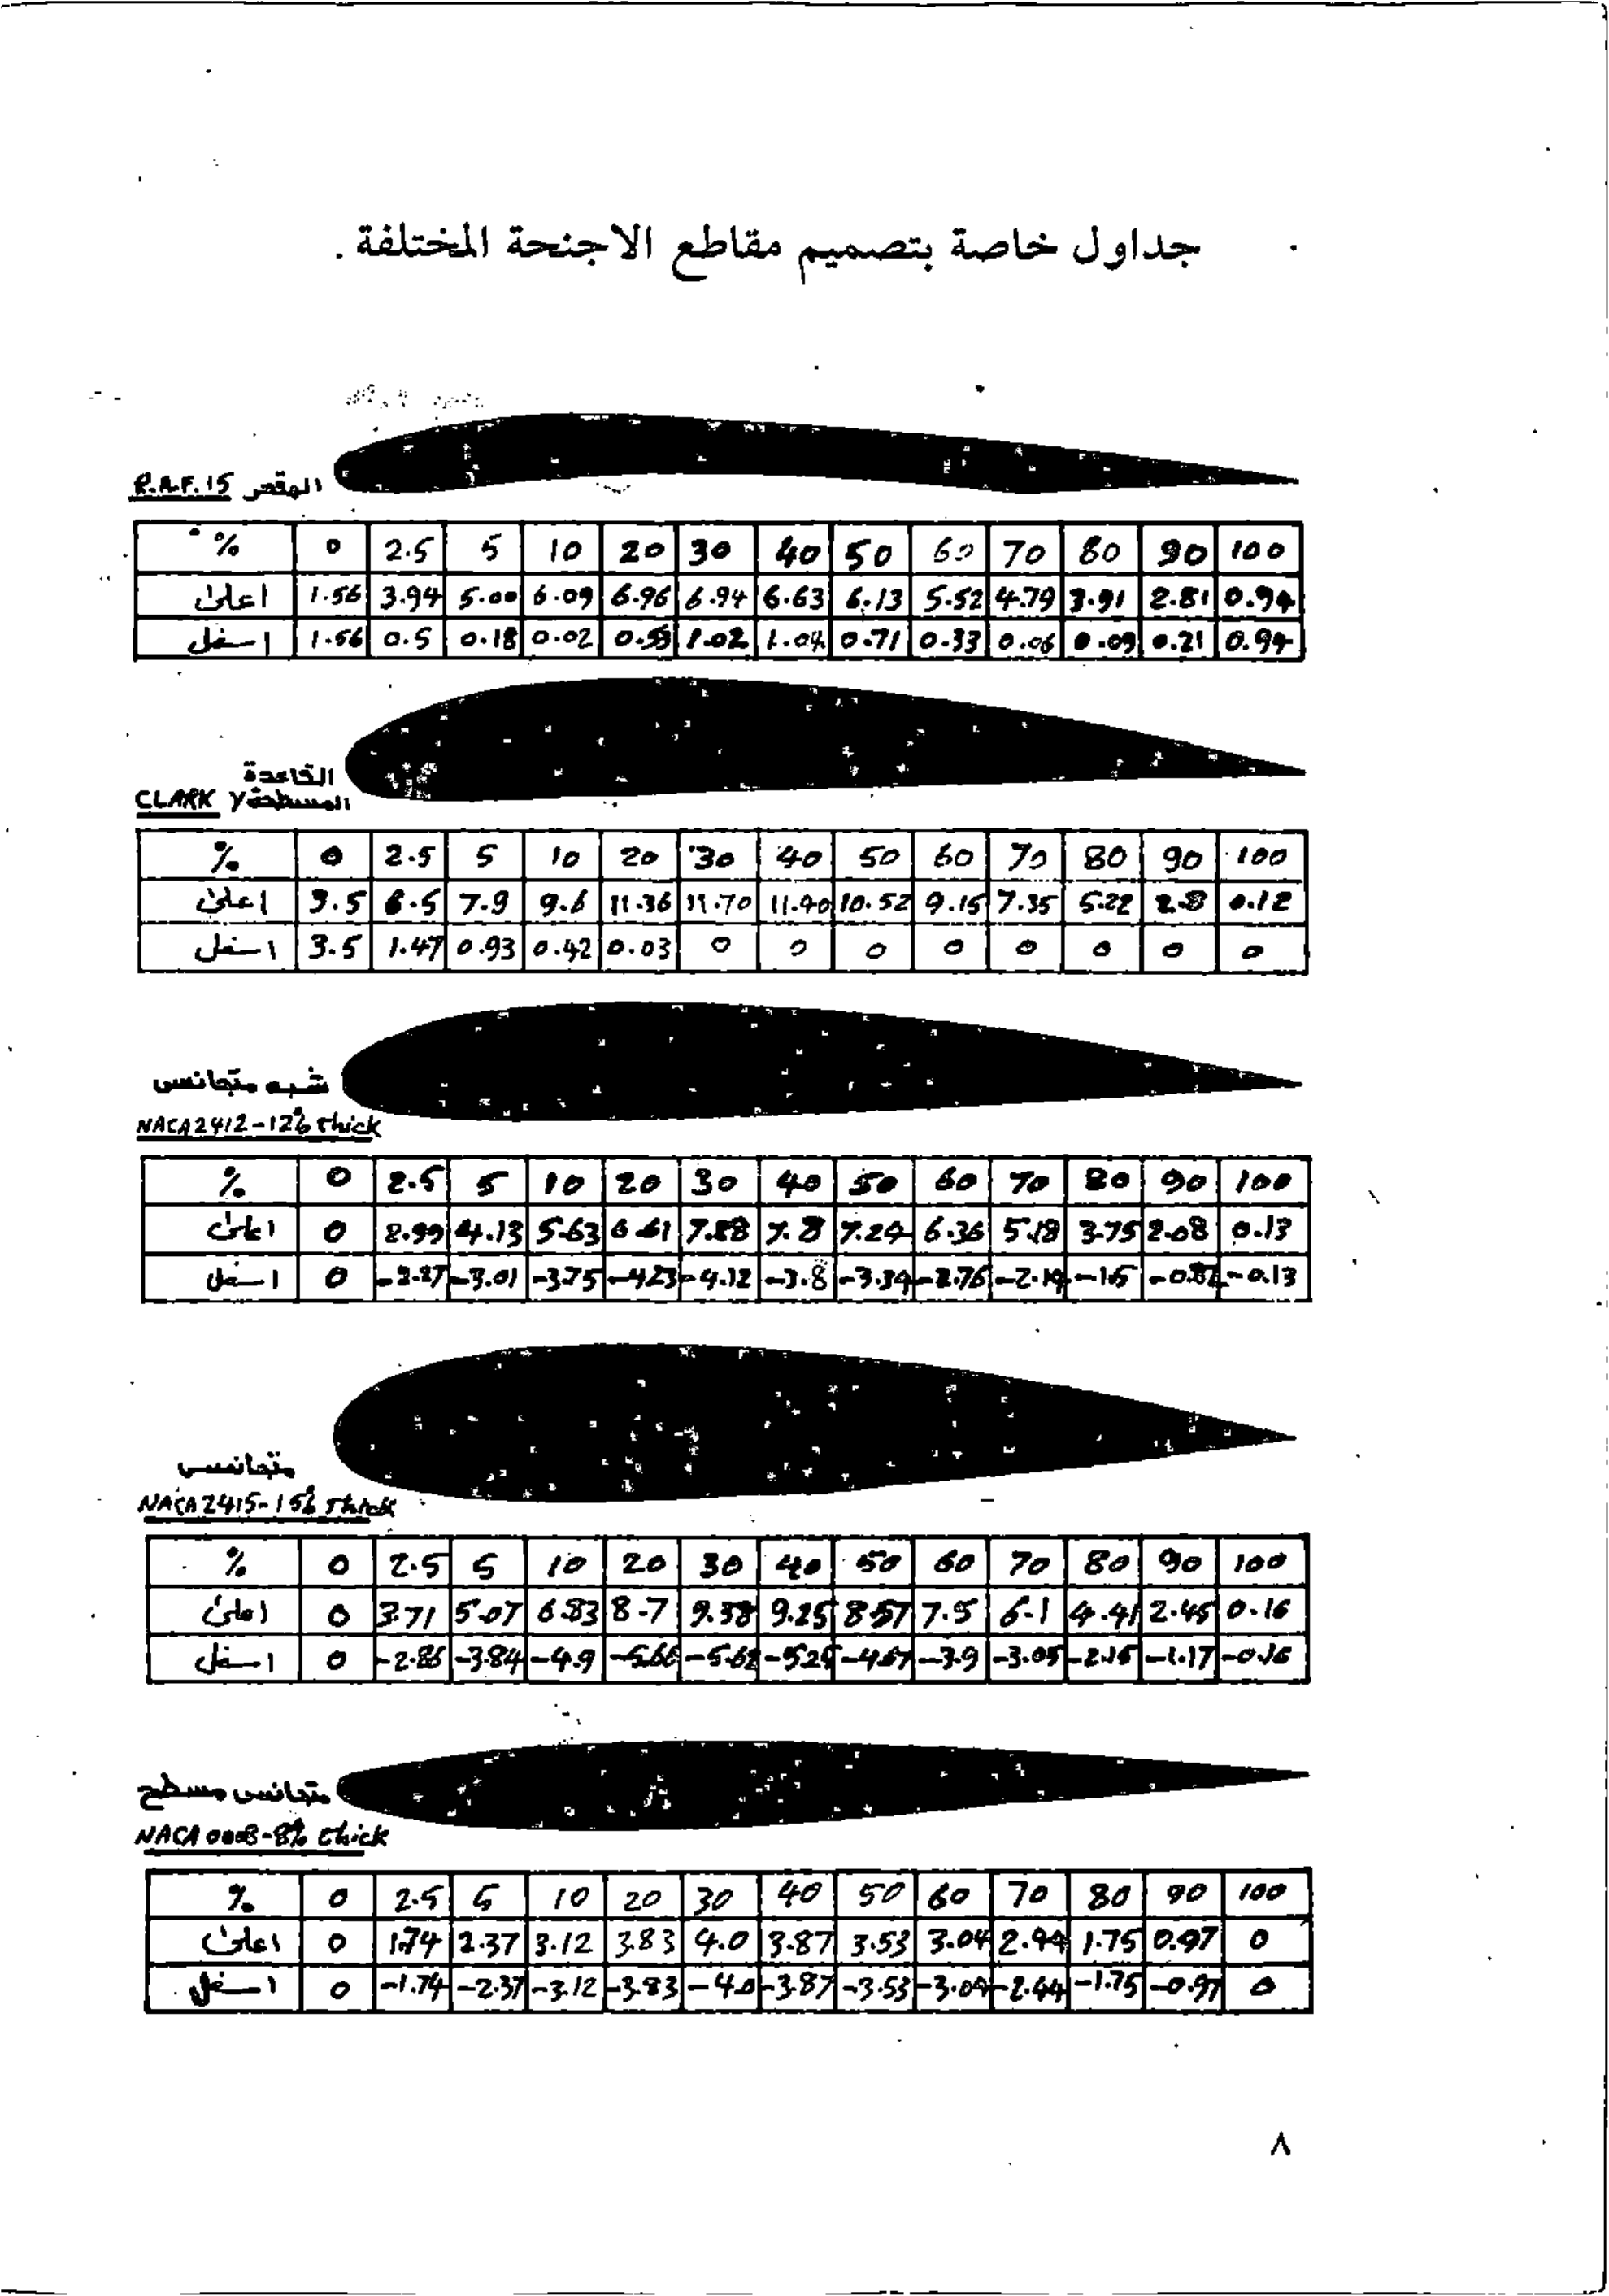 جداول خاصة بتصميم مقاطع الاجنحة المختلفة .
R.A.F. 15 المقعر
% 0 2.5 5 10 20 30 40 50 60 70 80 90 100
اعلى 1.56 3.94 5.00 6.09 6.96 6.94 6.63 6.13 5.52 4.79 3.91 2.81 0.94
اسفل 1.56 0.5 0.18 0.02 0.55 1.02 1.04 0.71 0.33 0.06 0.09 0.21 0.94
القاعدة
CLARK Y المسطحة
% 0 2.5 5 10 20 30 40 50 60 70 80 90 100
اعلى 3.5 6.5 7.9 9.6 11.36 11.70 11.40 10.52 9.15 7.35 5.22 2.8 0.12
اسفل 3.5 1.47 0.93 0.42 0.03 0 0 0 0 0 0 0 0
شبه متجانس
NACA 2412-12% thick
% 0 2.5 5 10 20 30 40 50 60 70 80 90 100
اعلى 0 2.99 4.13 5.63 6.61 7.88 7.8 7.24 6.36 5.18 3.75 2.08 0.13
اسفل 0 -2.27 -3.01 -3.75 -4.23 -4.12 -3.8 -3.34 -2.76 -2.14 -1.5 -0.82 -0.13
متجانس
NACA 2415-15% Thick
% 0 2.5 5 10 20 30 40 50 60 70 80 90 100
اعلى 0 3.71 5.07 6.83 8.7 9.38 9.25 8.57 7.5 6.1 4.41 2.45 0.16
اسفل 0 -2.86 -3.84 -4.9 -5.66 -5.62 -5.25 -4.67 -3.9 -3.05 -2.15 -1.17 -0.16
متجانس مسطح
NACA 0008-8% thick
% 0 2.5 5 10 20 30 40 50 60 70 80 90 100
اعلى 0 1.74 2.37 3.12 3.83 4.0 3.87 3.53 3.04 2.44 1.75 0.97 0
اسفل 0 -1.74 -2.37 -3.12 -3.83 -4.0 -3.87 -3.53 -3.04 -2.44 -1.75 -0.97 0
٨